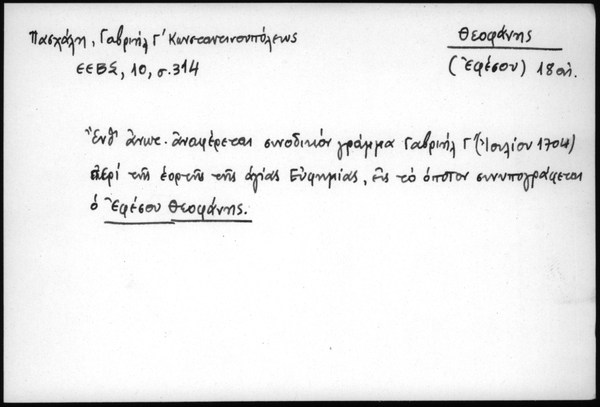 Πασχάλη, Γαβριήλ Γ' Κωνσταντινουπόλεως
ΕΕΒΣ, 10, σ.314
Θεοφάνης
(Ἐφέσου) 18 αἰ.
Ἔνθ' ἄνωτ. ἀναφέρεται συνοδικόν γράμμα Γαβριήλ Γ' (Ἰουλίου 1704)
περί τῆς ἑορτῆς τῆς ἁγίας Εὐφημίας, εἰς τό ὁποῖον συνυπογράφεται
ὁ Ἐφέσου Θεοφάνης.